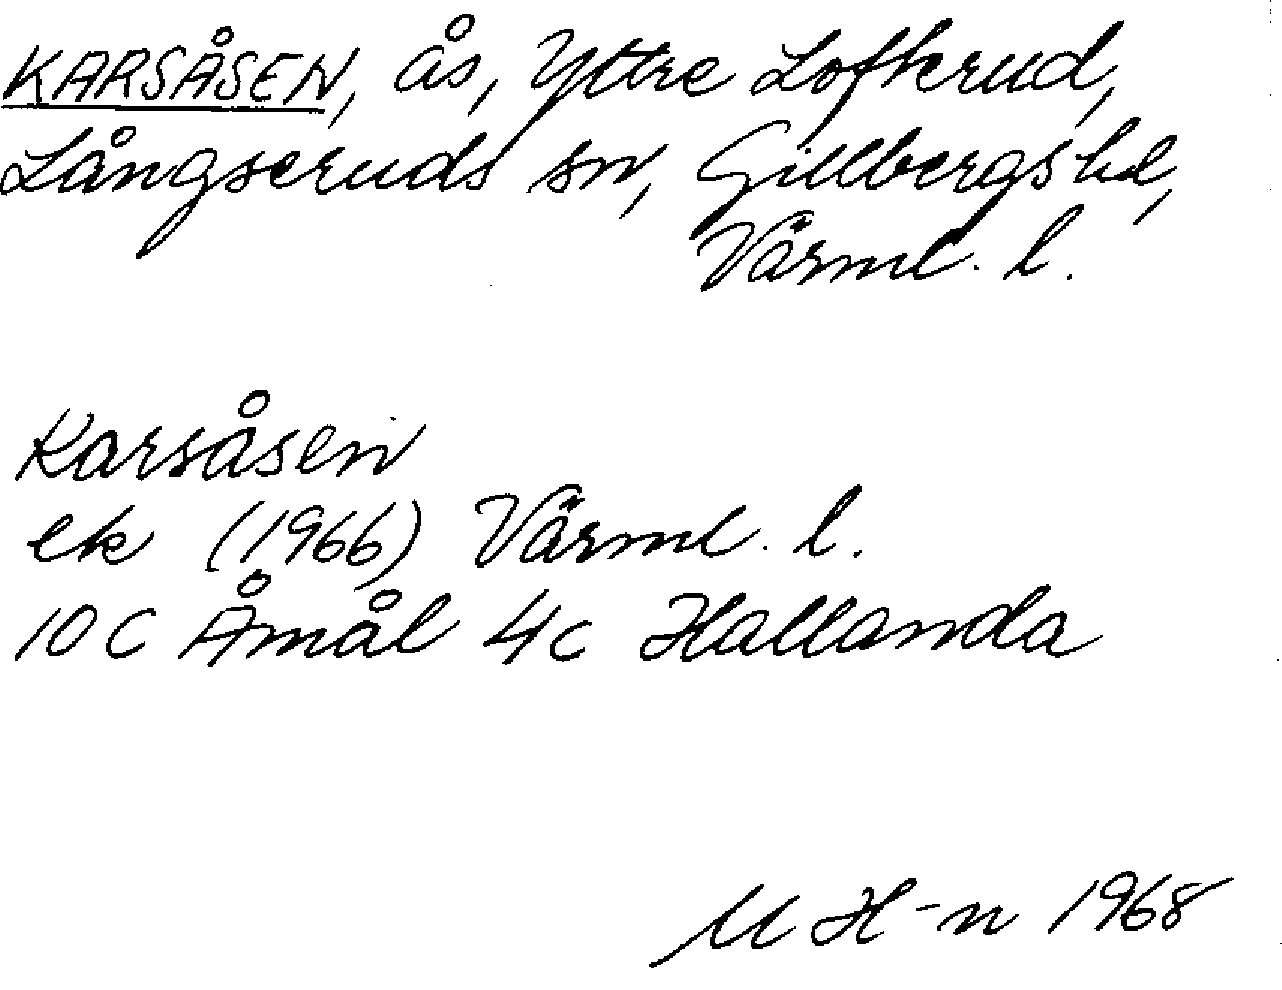 KARSÅSEN, ås, Yttre Lofterud,
Långseruds sn, Gillbergs hd,
Värml. l.
Karsåsen
ek (1966) Värml. l.
10 C Åmål 4c Hallanda
M H-n 1968